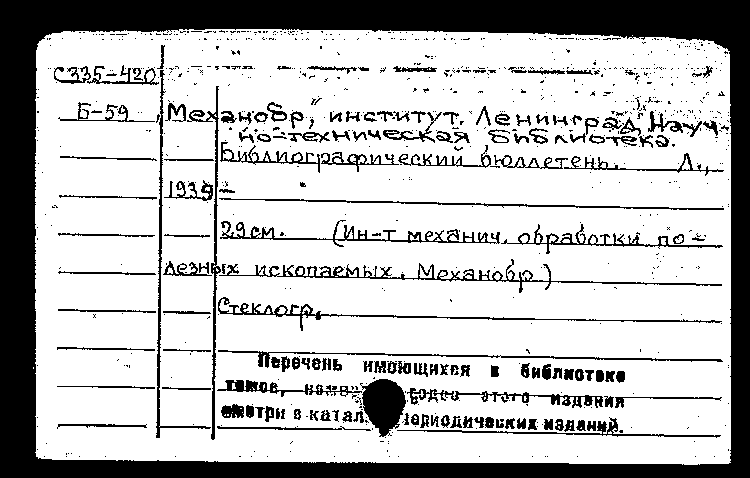 С335-420
Б-59 „Механобр,” институт, Ленинград, Науч-
но-техническая библиотека.
Библиографический бюллетень. Л.,
1939-
29см. (Ин-т механич. обработки по-
лезных ископаемых. Механобр)
Стеклогр.
Перечень имеющихся в библиотеке
томов, годов этого издания
смотри в периодических изданий.